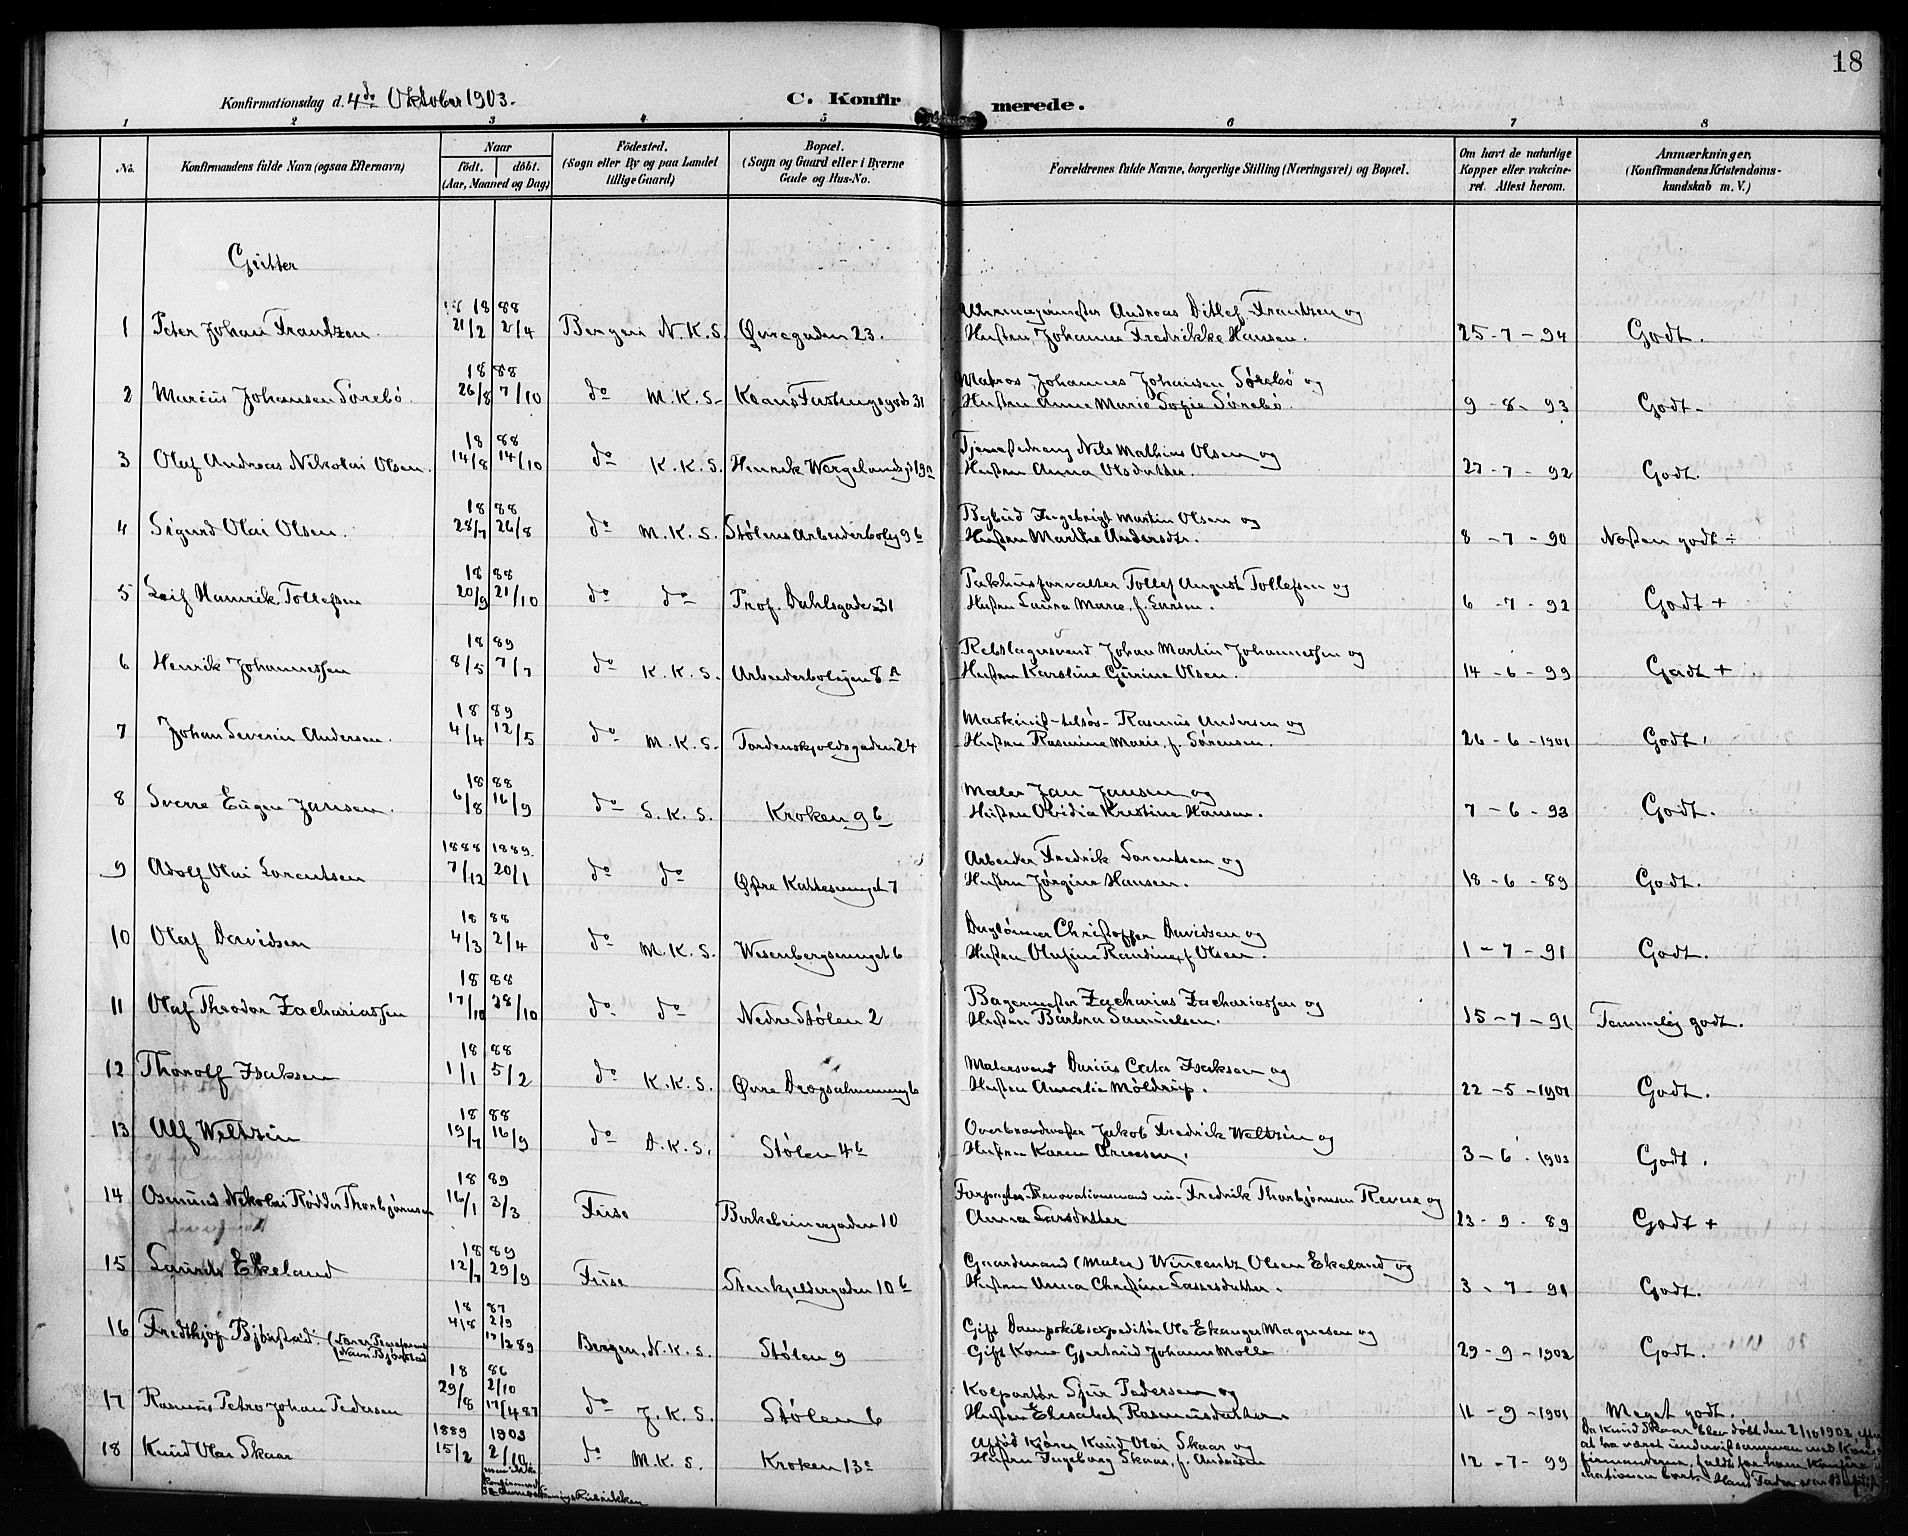 18
Konfirmationsdag d. 4de Oktober 1903.
C. Konfirmerede.
1 2 3 4 5 6 7 8
No.
Konfirmandens fulde Navn (ogsaa Efternavn)
Naar
født. døbt.
(Aar, Maaned og Dag)
Fødested.
(Sogn eller By og paa Landet
tillige Gaard)
Bopæl.
(Sogn og Gaard eller i Byerne
Gade og Hus-No.
Forældrenes fulde Navne, borgerlige Stilling (Næringsvei) og Bopæl.
Om havt de naturlige
Kopper eller vakcine-
ret. Attest herom.
Anmærkninger.
(Konfirmandens Kristendoms-
kundskab m. V.)
Gutter
18 88
Andreas Ditlef Frantzen og
1 Peter Johan Frantzen. 21/2 2/4 Bergen N.K.S. Øvregaden 23. Hustru Johanne Fredrikke Hansen. 25-7-94 Godt.
18 88
Matros Johannes Johansen Sørebø og
2 Marius Johansen Sørebø. 26/8 7/10 do M.K.S. 31 Hustru Anna Marie Sofie Sørebø. 9-8-93 Godt
18 88
Tjenestedreng Nils Mathias Olsen og
3 Olaf Andreas Nikolai Olsen. 14/8 14/10 do K.K.S. Henrik Wergelandsg 19a Hustru Anna Olsdatter. 27-7-92 Godt.
18 88
Bybud Ingebrigt Martin Olsen og
4 Sigurd Olai Olsen. 28/7 26/8 do M.K.S. Stølens Arbeiderbolig 9b Hustru Martha Andersdtr. 8-7-90 Næsten godt÷
18 88
Pakhusforvalter Tollef August Tollefsen og
5 Leif Henrik Tollefsen 20/9 21/10 do do Prof. Dahlsgaden 31 Hustru Laura Marie, f. Larsen. 6-7-92 Godt +
18 89
Rebslagersvend Johan Martin Johannessen og
6 Henrik Johannessen 8/5 7/7 do K.K.S. Arbeiderboligen 8A Hustru Karoline Gurine Olsen. 14-6-99 Godt +
18 89
Rasmus Andersen og
7 Johan Severin Andersen. 4/4 12/5 do M.K.S. Tordenskjoldsgaden 24 Hustru Rasmine Marie, f. Sørensen. 26-6-1901 Godt
18 88
Maler Jan Jansen og
8 Sverre Eugen Jansen. 6/8 16/9 do S.K.S. Kroken 9b Hustru Ovidia Kristine Hansen. 7-6-93 Godt.
1888 1889.
Arbeider Fredrik Lorentsen og
9 Adolf Olai Lorentsen 7/12 20/1 do do Østre Kattesmuget 7 Hustru Jørgine Hansen. 18-6-89 Godt.
18 88
Christoffer Davidsen og
10 Olaf Davidsen 4/3 2/4 do M.K.S. Wesenbergsmuget 6 Hustru Olufine Randine f. Olsen. 1-7-91 Godt.
18 88
Bagermester Zacharias Zachariassen og
11 Olaf Theodor Zachariassen 17/10 28/10 do do Nedre Stølen 2 Hustru Barbra Samuelsen. 15-7-91 Temmelig godt.
18 88
Malersvend Darius Isaksen og
12 Thorolf Isaksen 1/1 5/2 do K.K.S. Øvre Dragsalmenning 6 Hustru Amalie Moldrup. 22-5-1901 Godt.
18 88
Jakob Fredrik Weltzin og
13 Alf Weltzin 19/7 16/9 do D.K.S. Stølen 4b Hustru Karen Arnesen. 3-6-1903 Godt.
18 89
Fredrik Thorbjørnsen Revese og
14 Osmund Nikolai Rødder Thorbjørnsen 16/1 3/3 Fuse Birkebeinergaden 10 Anna Larsdatter 23-9-89 Godt +
18 89
Gaardmand (Maler) Wincentz Olsen Ekeland og
15 Laurits Ekeland 12/7 29/9 Fuse Stenkjeldergaden 10b Hustru Anna Christine Lassesdatter. 3-7-91 Godt.
18 87
4/8 2/9
Gift Dampskibsexpeditør Ole Ekanger Magnesen og
16 Fredthjof Bjørstad. 17/2 89 Bergen, N.K.S. Stølen 9 Gift Kone Gjertrud Johanne Molle 29-9-1902 Godt.
18 86
29/8 2/10
Kolportør Sjur Pedersen og
17 Rasmus Petro Johan Pedersen 17/4 87 do J.K.S. Stølen 6 Hustru Elisabeth Rasmusdatter 11-9-1901 Meget godt.
1889 1903
Knud Olai Skaar og
18 Knud Olai Skaar 15/2 2/10 do M.K.S. Kroken 13c Hustru Ingeborg Skaar, f. Andersen 12-7-99
Da Knud Skaar blev døbt den 2/10 1903, efter
at ha været undervist sammen med Kon-
firmanderne, faldt for ham Konfir-
mationen bort. Hans Fader var Baptist